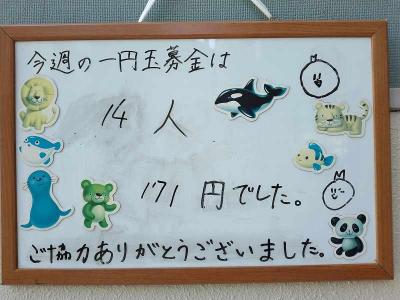 今週の一円玉募金は
14人
171円でした。
ご協力ありがとうございました。